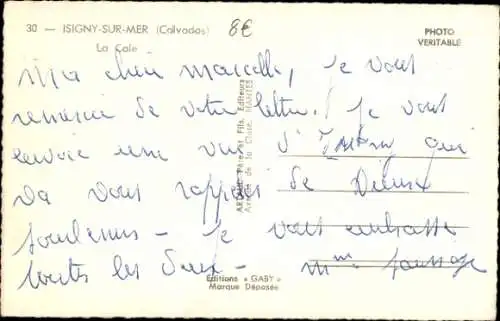 30 — ISIGNY-SUR-MER (Calvados)
La Cale
8€
PHOTO
VERITABLE
Ma chère Marcelle, Je vous
remercie de votre lettre. Je vous
envoie une vue d'Isigny qui
va vous rappeler de vieux
souvenirs - Je vous embrasse
toutes les deux - Mme
ARTAUD Père et Fils, Editeurs
Avenue de la Close, NANTES
Editions « GABY »
Marque Déposée